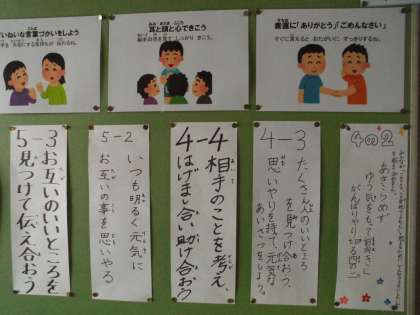 いねいな言葉づかいをしよう
耳と頭と心できこう
相手の目を見て しっかり きこう。
素直に「ありがとう」「ごめんなさい」
すぐに言えると おたがいに すっきりするね。
5-3
お互いのいいところを
見つけて伝え合おう
5-2
いつも明るく元気に
お互いの事を思いやる
4-4
相手のことを考え、
はげまし合い助け合おう
4-3
たくさんのいいところ
を見つけ合おう。
思いやりを持って、元気な
あいさつをしよう。
4の2
あきらめず
ゆう気をもって前向きに
がんばりやり切る四の二